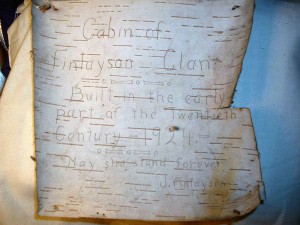 Cabin of
Finlayson Clan
Built in the early
part of the Twentieth
Century 1924.
May she stand forever
J. Finlayson